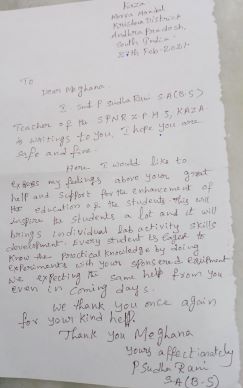 Kaza
Mandal
Krishna District
Andhra Pradesh,
South India
Feb-2021.
To
Dear Meghana.
I Smt P Sudha Rani S.A(B.S)
Teacher of the SPNR Z P H S, KAZA.
is writings to you, I hope you are
safe and fine.
Here I would like to
express my feelings above your great
help and support for the enhancement of
the education of the students. This will
inspire the students a lot and it will
brings individual lab activity skills
development. Every student is to
know the practical knowledge by doing
experiments with your sponsered equipment
we expecting the same help from you
even in coming days.
We thank you once again
for your kind help.
Thank you Meghana
yours affectionately
P Sudha Rani
S.A(B.S)